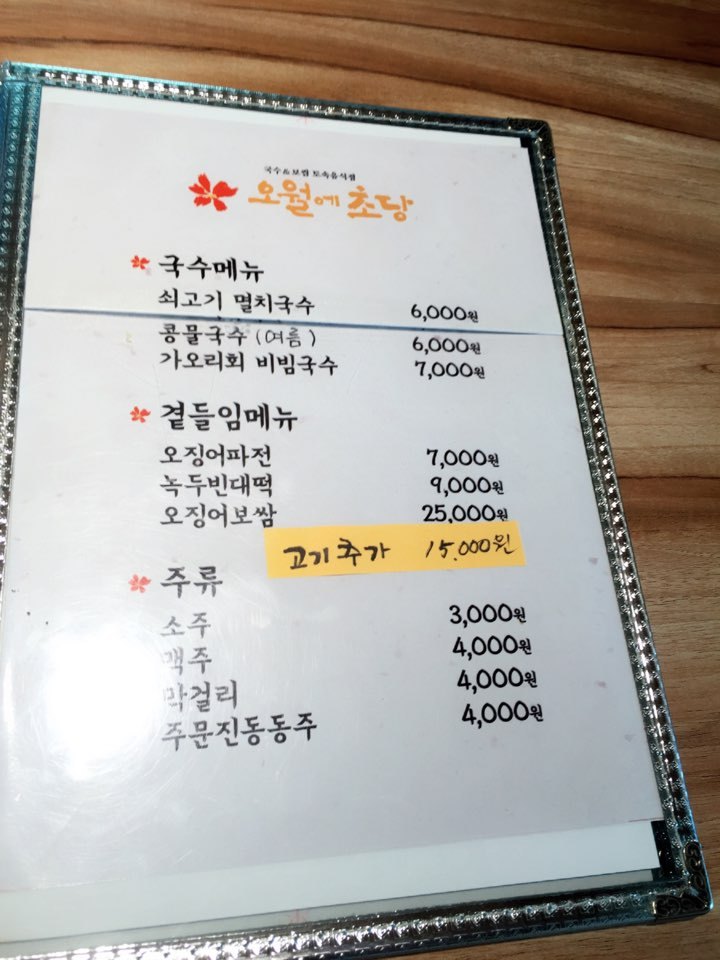 국수&보쌈 토속음식점
오월에 초당
국수메뉴
쇠고기 멸치국수 6,000원
콩물국수 (여름) 6,000원
가오리회 비빔국수 7,000원
곁들임메뉴
오징어파전 7,000원
녹두빈대떡 9,000원
오징어보쌈 25,000원
고기추가 15,000원
주류
소주 3,000원
맥주 4,000원
막걸리 4,000원
주문진동동주 4,000원